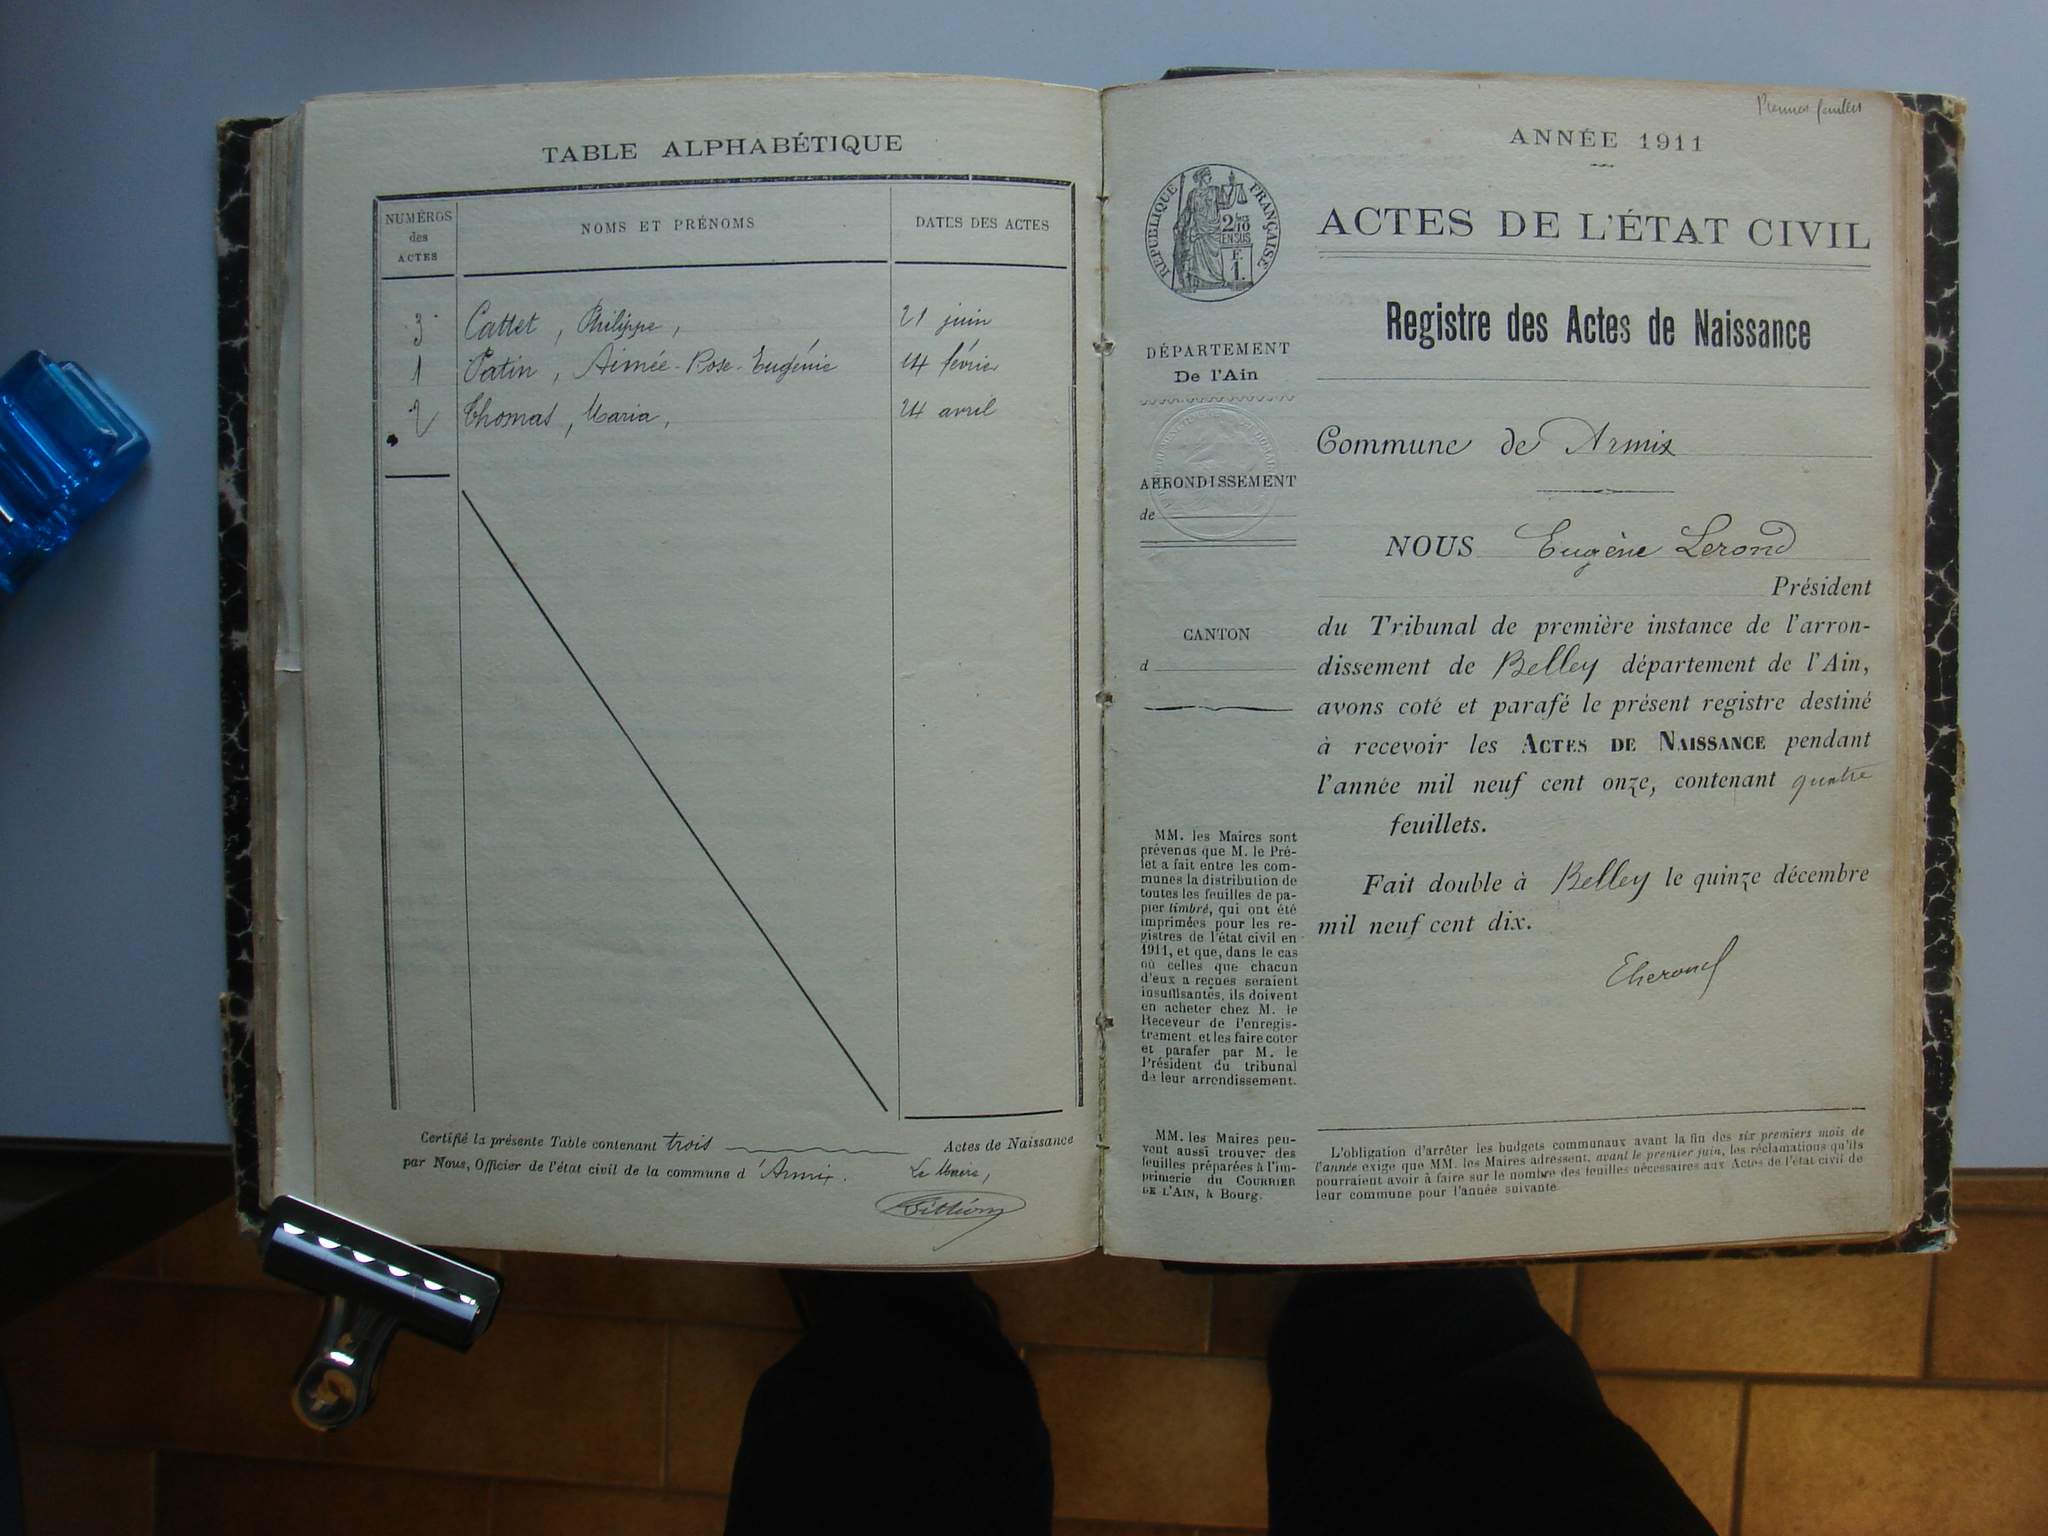 TABLE ALPHABÉTIQUE
NUMÉROS
des
ACTES
NOMS ET PRÉNOMS
DATES DES ACTES
3 Cattet, Philippe, 21 juin
1 Patin, Aimée-Rose-Eugénie 14 février
2 Thomas, Maria, 24 avril
Certifié la présente Table contenant trois Actes de Naissance
par Nous, Officier de l'état civil de la commune d'Armix. Le Maire,
Premier feuillet
ANNÉE 1911
RÉPUBLIQUE FRANÇAISE
2/10
EN SUS
F.
1.
ACTES DE L'ÉTAT CIVIL
Registre des Actes de Naissance
DÉPARTEMENT
De l'Ain
ARRONDISSEMENT
de
CANTON
d
MM. les Maires sont
prévenus que M. le Pré-
fet a fait entre les com-
munes la distribution de
toutes les feuilles de pa-
pier timbré, qui ont été
imprimées pour les re-
gistres de l'état civil en
1911, et que, dans le cas
où celles que chacun
d'eux a reçues seraient
insuffisantes, ils doivent
en acheter chez M. le
Receveur de l'enregis-
trement et les faire coter
et parafer par M. le
Président du tribunal
de leur arrondissement.
MM. les Maires peu-
vent aussi trouver des
feuilles préparées à l'im-
primerie du COURRIER
DE L'AIN, à Bourg.
Commune de Armix
NOUS Eugène Lerond
Président
du Tribunal de première instance de l'arron-
dissement de Belley département de l'Ain,
avons coté et parafé le présent registre destiné
à recevoir les ACTES DE NAISSANCE pendant
l'année mil neuf cent onze, contenant quatre
feuillets.
Fait double à Belley le quinze décembre
mil neuf cent dix.
L'obligation d'arrêter les budgets communaux avant la fin des six premiers mois de
l'année exige que MM. les Maires adressent, avant le premier juin, les réclamations qu'ils
pourraient avoir à faire sur le nombre des feuilles nécessaires aux Actes de l'état civil de
leur commune pour l'année suivante